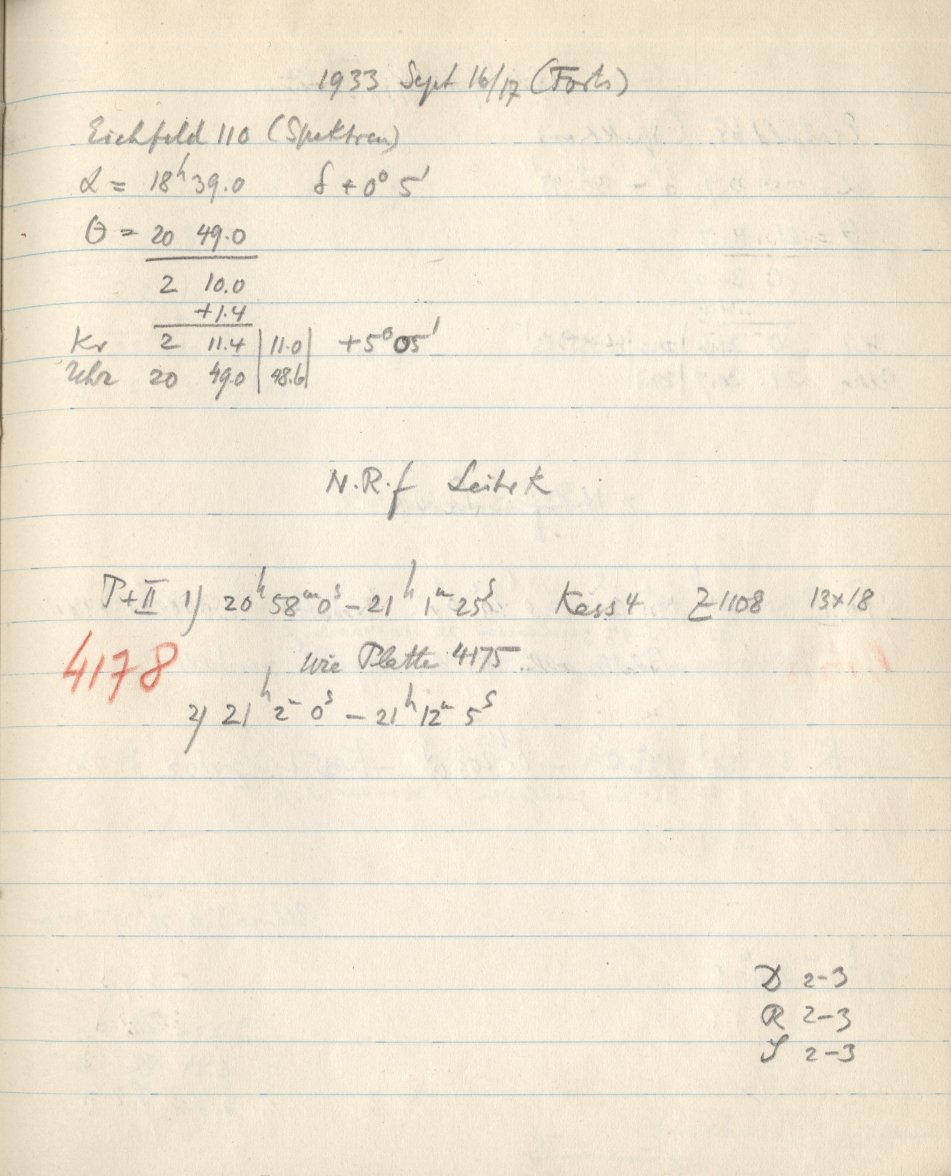 1933 Sept 16/17 (Forts)
Eichfeld 110 (Spektren)
α = 18ʰ39.0 δ +0° 5'
θ = 20 49.0
2 10.0
+1.4
Kr 2 11.4 | 11.0 | +5° 05'
Uhr 20 49.0 | 48.6 |
N.R.f Leitrk
T+II 1) 20ʰ58ᵐ0ˢ – 21ʰ 1ᵐ 25ˢ Kass 4 Z1108 13×18
4178 wie Platte 4175
2) 21ʰ 2ᵐ 0ˢ – 21ʰ 12ᵐ 5ˢ
D 2–3
R 2–3
S 2–3